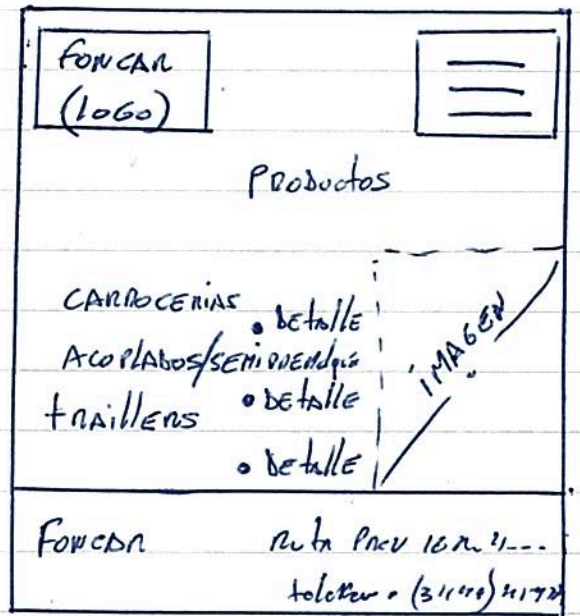 FONCAR
(LOGO)
PRODUCTOS
CARROCERIAS
• DETALLE
ACOPLADOS/SEMIRREMOLQUE
TRAILLERS
• DETALLE
• DETALLE
IMAGEN
FONCAR
Ruta Prov